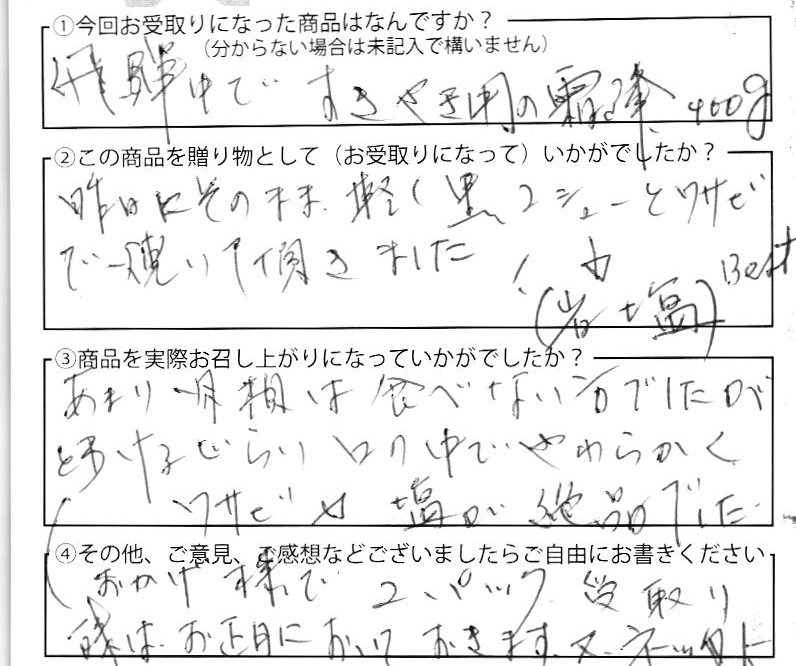 ①今回お受取りになった商品はなんですか？
（分からない場合は未記入で構いません）
飛騨牛で すきやき用の霜降 400g
②この商品を贈り物として（お受取りになって）いかがでしたか？
昨日はそのまま 軽く黒コショーとワサビ
で焼いて頂きました
(岩塩) Best
③商品を実際お召し上がりになっていかがでしたか？
あまり は食べない方でしたが
とろけるぐらい 口の中でやわらかく
ワサビや塩が絶品でした
④その他、ご意見、ご感想などございましたらご自由にお書きください
おかげ様で 2パック受取り
はお正月に おきます 又ネット